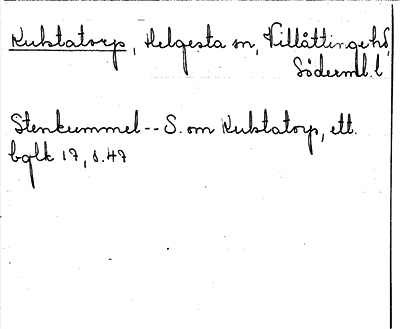 Kukstatorp, Helgesta sn, Villåttinge hd,
Söderml. l
Stenkummel -- S. om Kukstatorp, ett.
bglk 17, s. 47